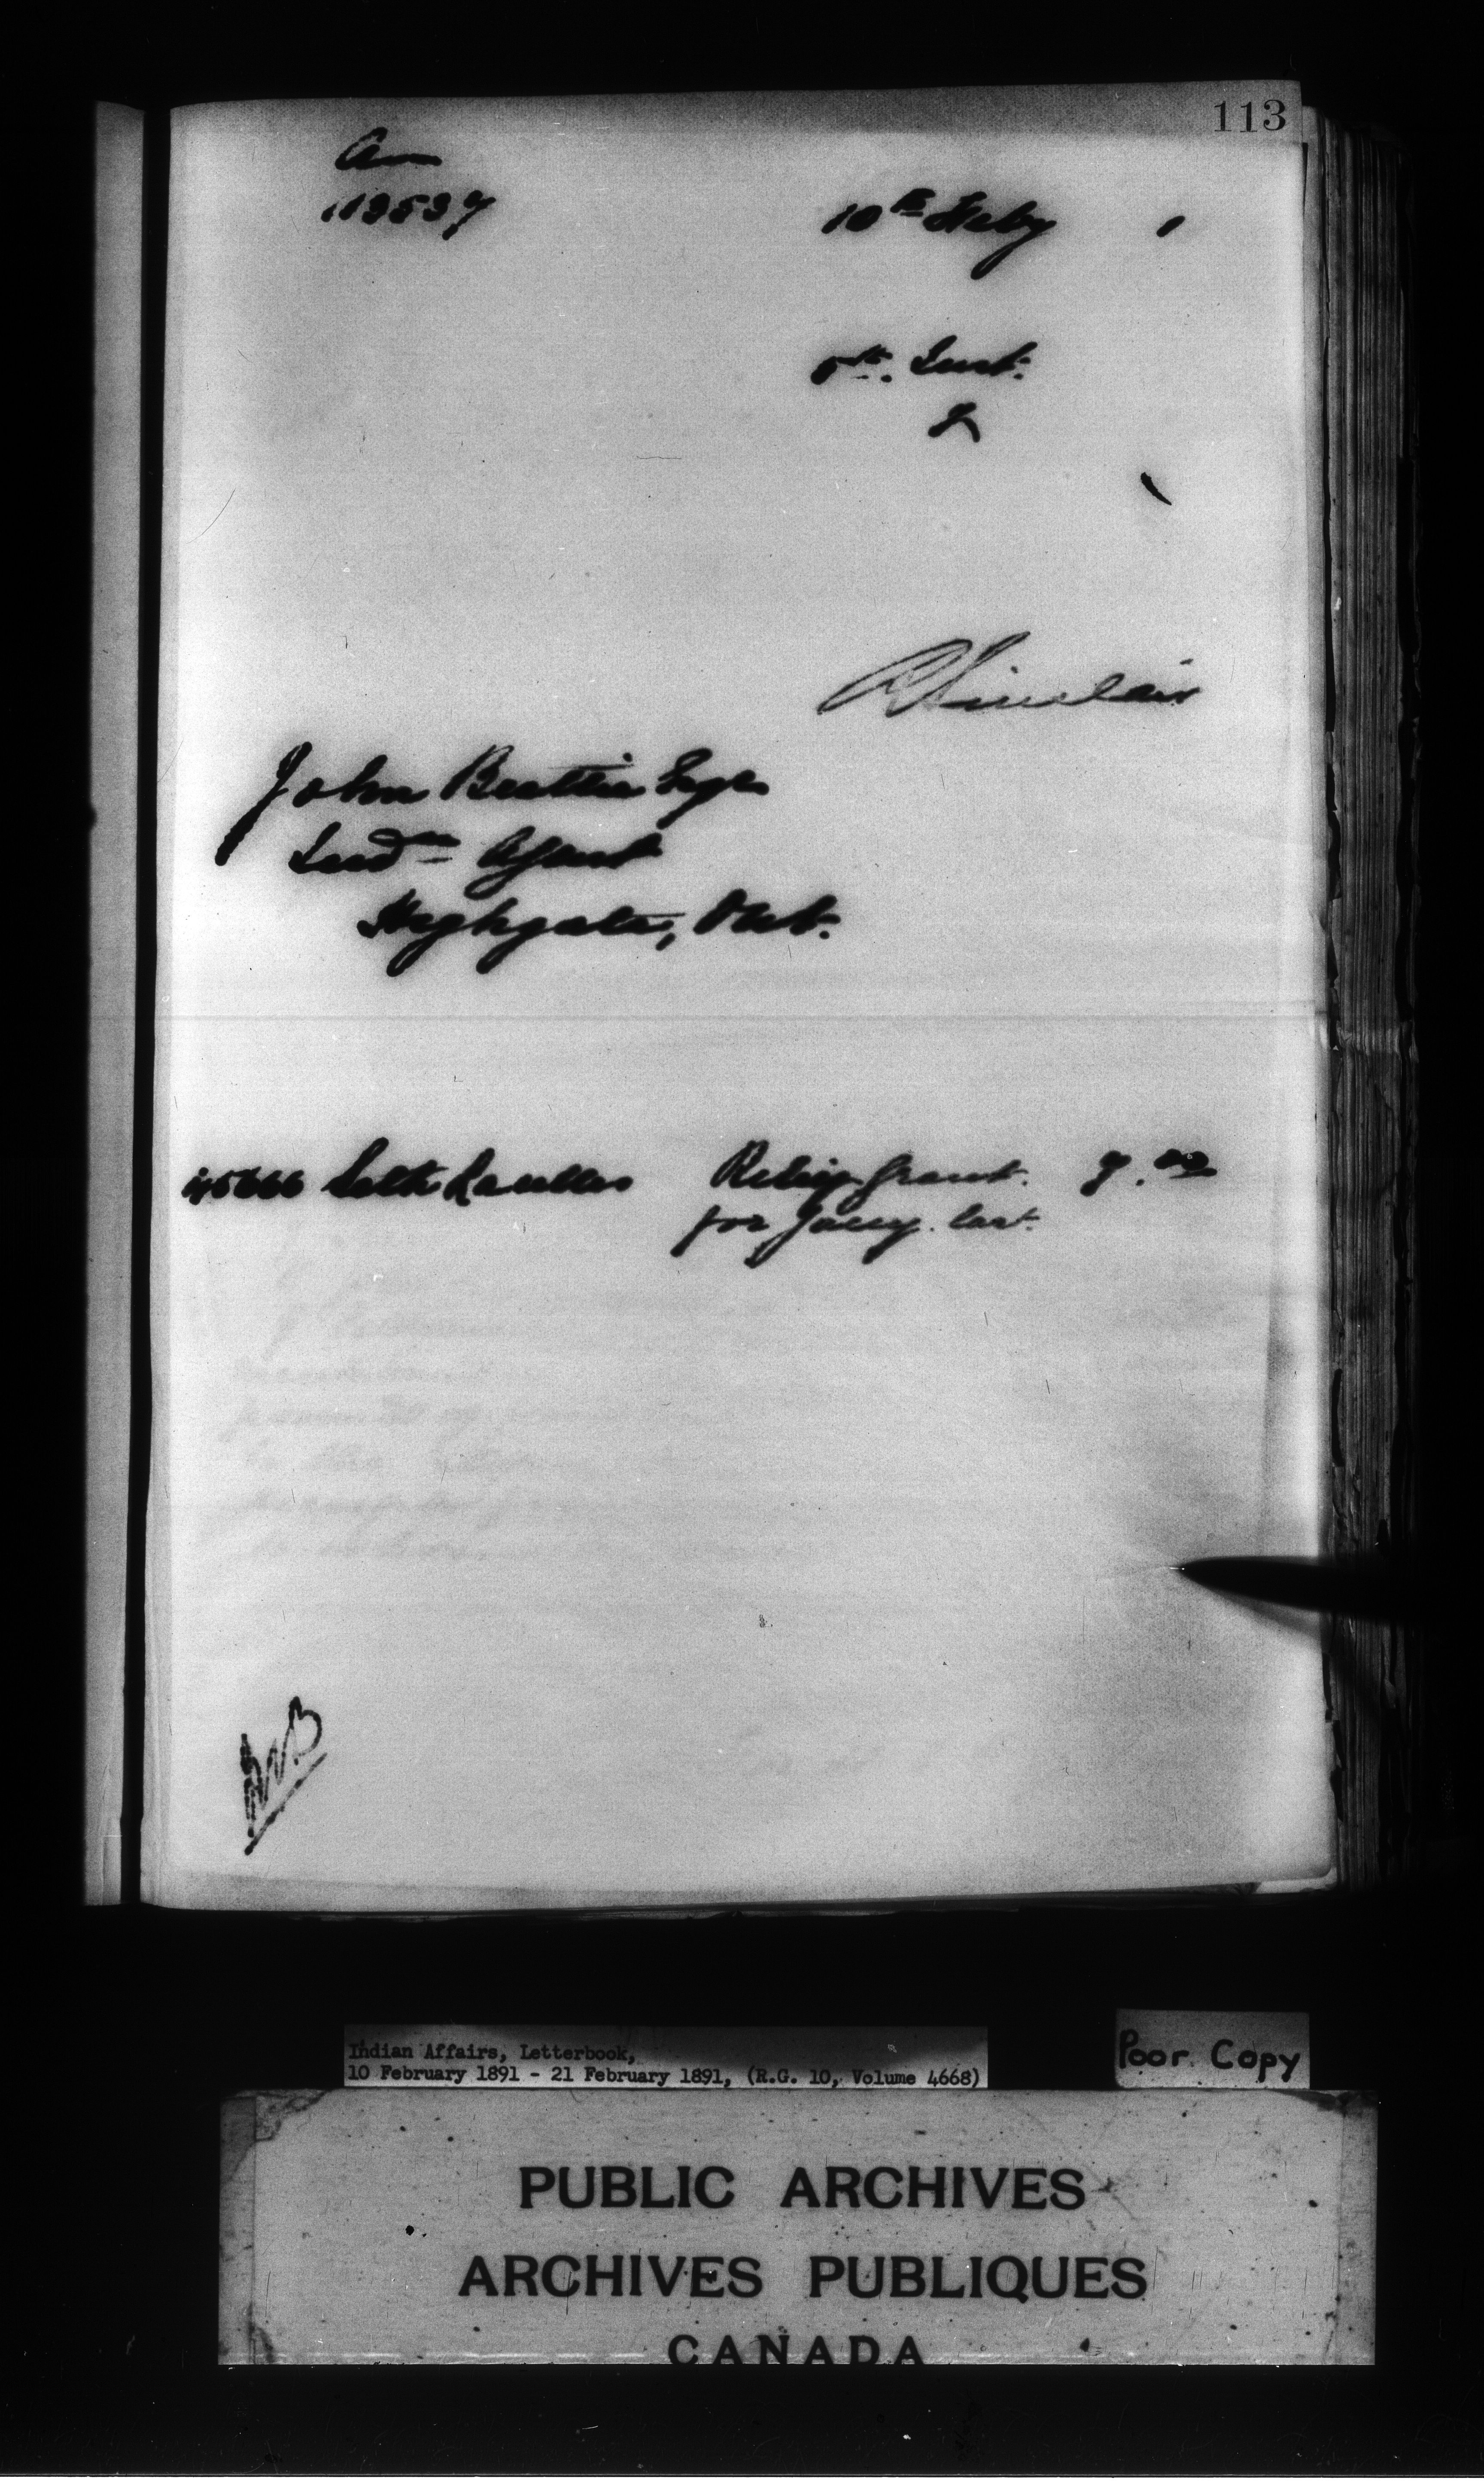 113
113537
10th Feby 1
5th. Inst.
R Sinclair
John Beattie Esqr
Ind^n Agent
Highgate, Ont.
Relief Grant.
for Jany. last.
Indian Affairs, Letterbook,
10 February 1891 - 21 February 1891, (R.G. 10, Volume 4668)
Poor Copy
PUBLIC ARCHIVES
ARCHIVES PUBLIQUES
CANADA